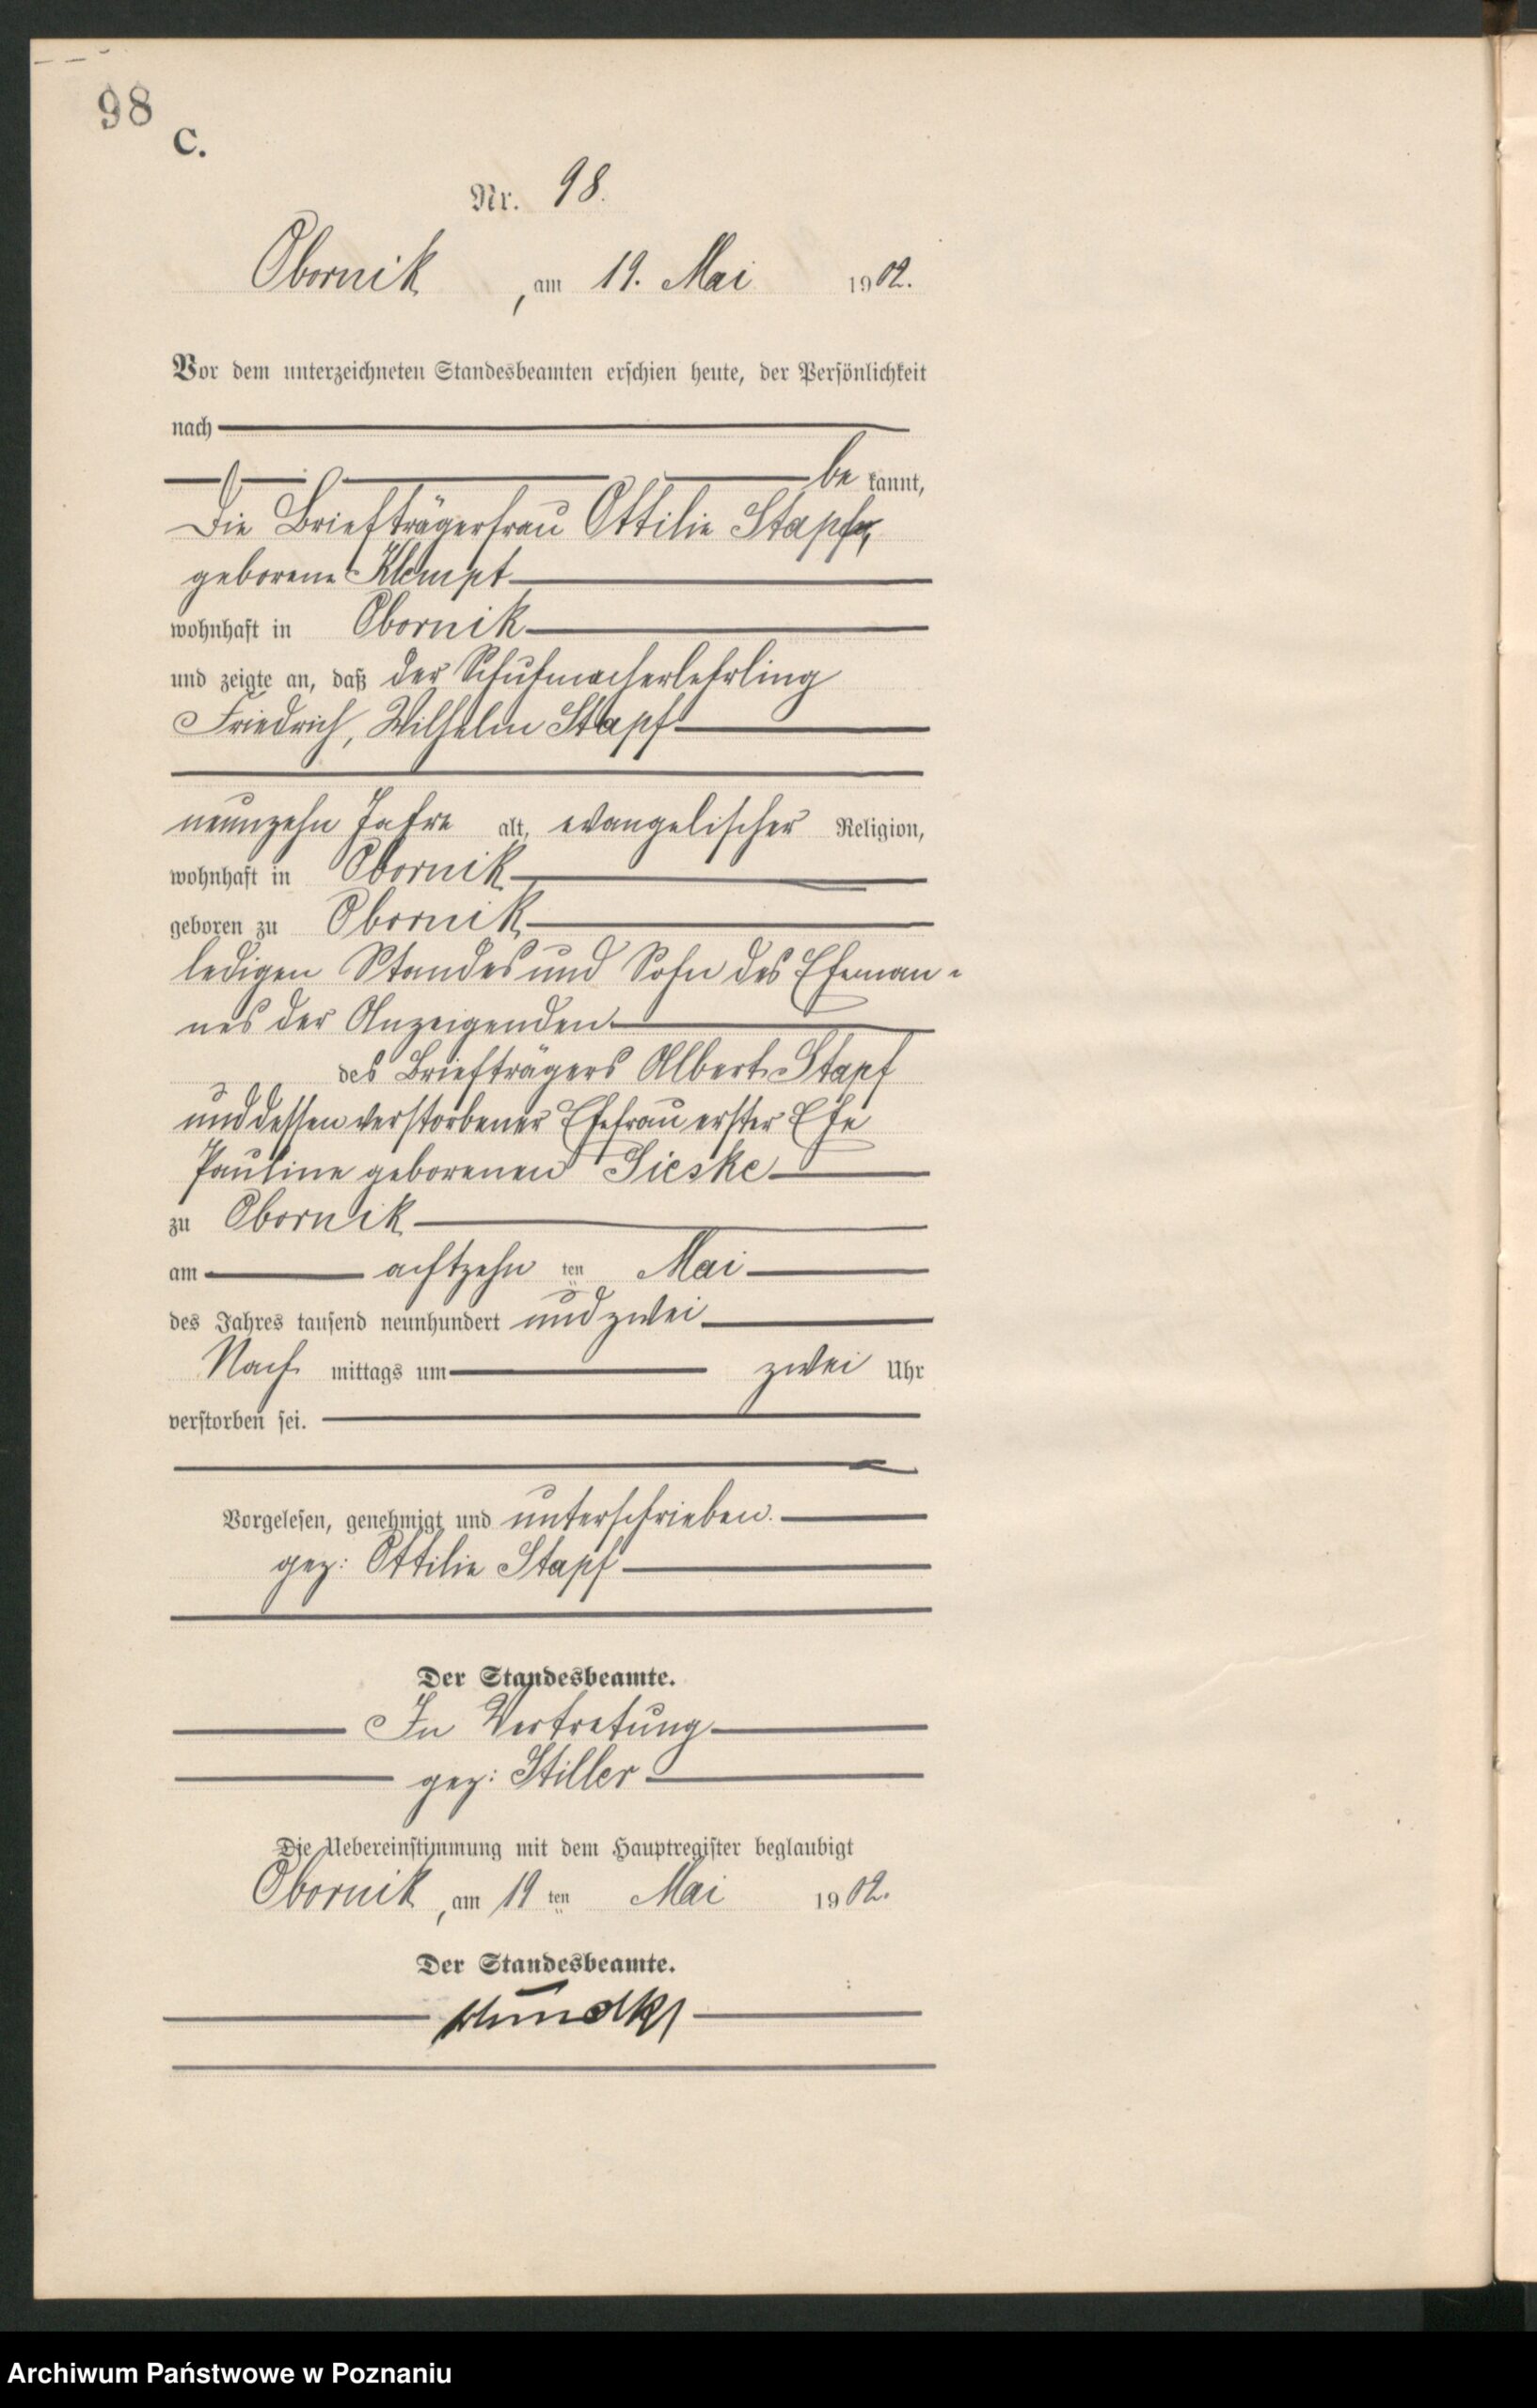 98
C.
Nr. 98.
Obornik, am 19. Mai 1902.
Vor dem unterzeichneten Standesbeamten erschien heute, der Persönlichkeit
nach
be kannt,
die Briefträgerfrau Ottilie Stapf,
geborene Klempt
wohnhaft in Obornik
und zeigte an, daß der Schuhmacherlehrling
Friedrich, Wilhelm Stapf
neunzehn Jahre alt, evangelischer Religion,
wohnhaft in Obornik
geboren zu Obornik
ledigen Standes und Sohn des Eheman-
nes der Anzeigenden
des Briefträgers Albert Stapf
und dessen verstorbener Ehefrau erster Ehe
Pauline geborenen Sieske
zu Obornik
am achtzehn ten Mai
des Jahres tausend neunhundert und zwei
Nach mittags um zwei Uhr
verstorben sei.
Vorgelesen, genehmigt und unterschrieben.
gez: Ottilie Stapf
Der Standesbeamte.
In Vertretung
gez: Stiller
Die Uebereinstimmung mit dem Hauptregister beglaubigt
Obornik, am 19 ten Mai 1902.
Der Standesbeamte.
Archiwum Państwowe w Poznaniu